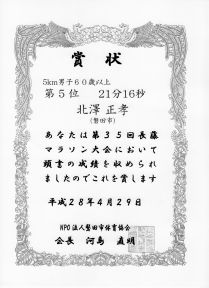 賞状
5km男子60歳以上
第5位 21分16秒
北澤 正孝
(磐田市)
あなたは第35回長藤
マラソン大会において
頭書の成績を収められ
ましたのでこれを賞します
平成28年4月29日
NPO法人磐田市体育協会
会長 河島 直明